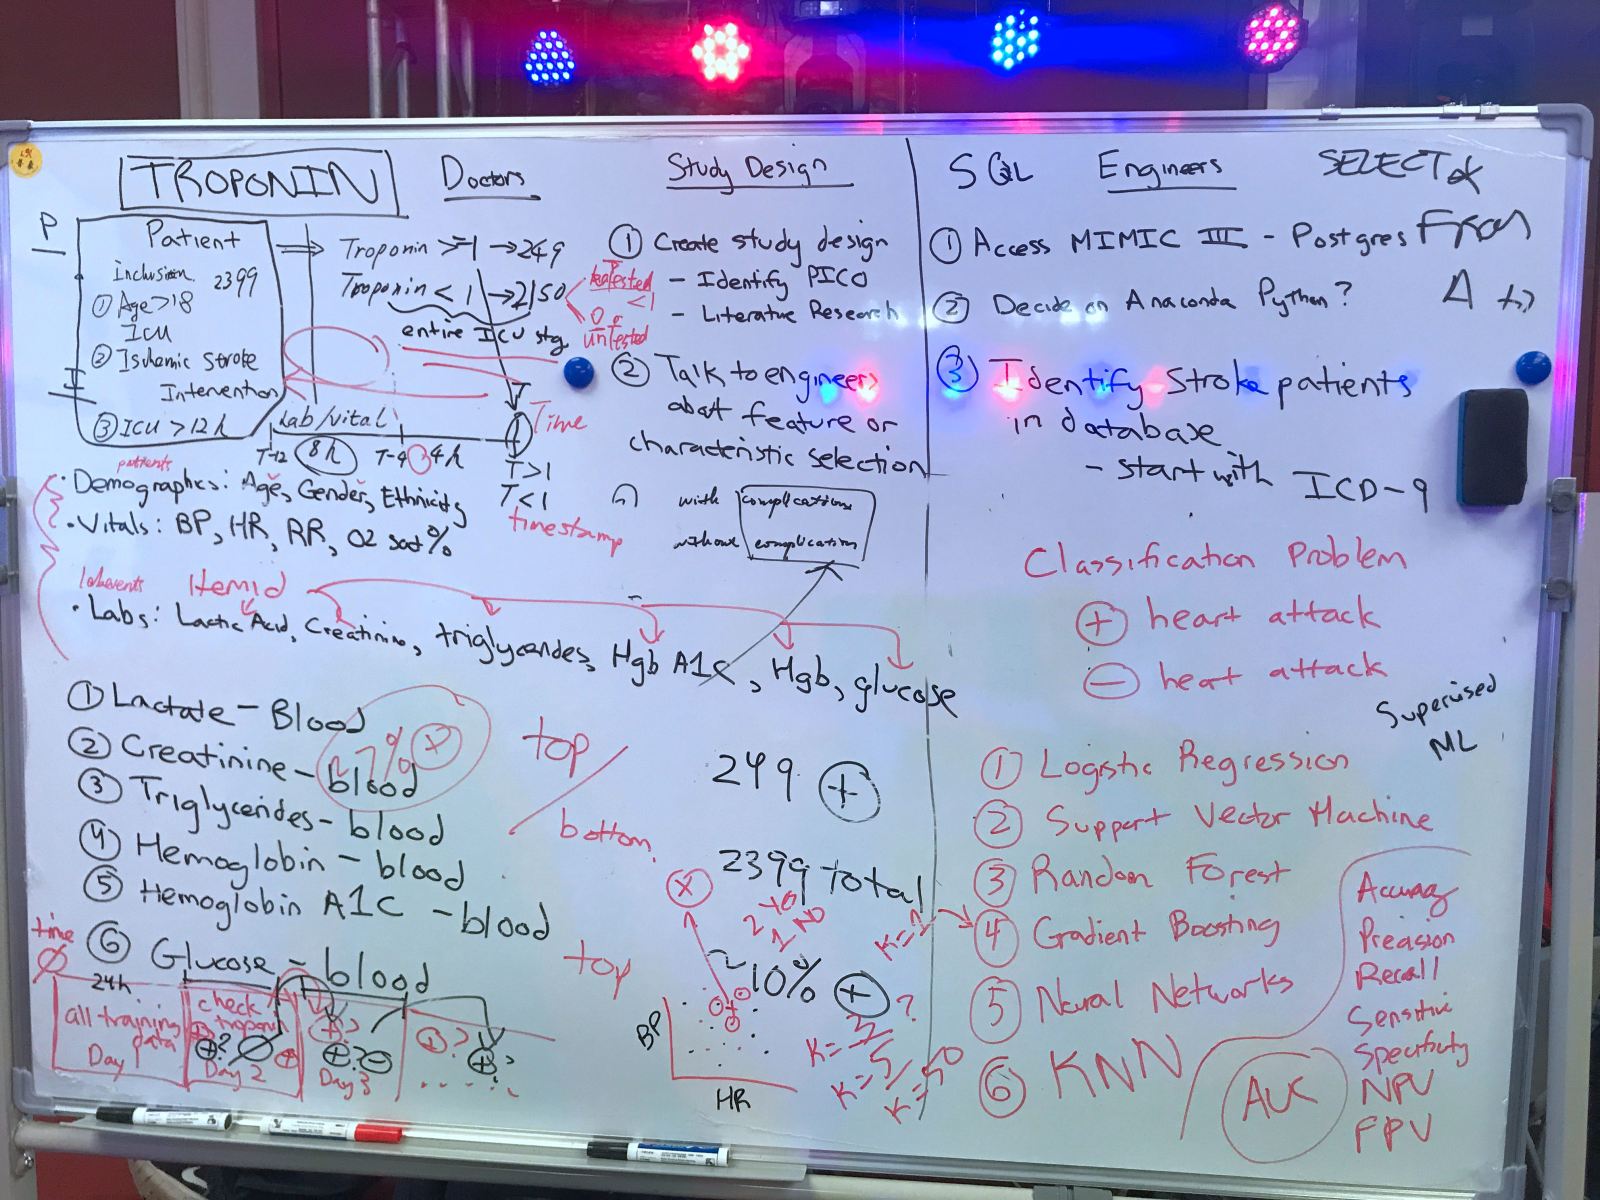 TROPONIN
Doctors
P
Patient
Inclusion 2399
① Age>18
ICU
② Ischemic Stroke
I
Intervention
③ ICU >12h
Troponin >=1 → 249
Troponin < 1 → 2150
entire ICU stay
T
tested
<1
0 or
untested
Lab/vital
T-12
8h
T-4
4h
Time
T>1
T<1
timestamp
patients
• Demographics: Age, Gender, Ethnicity
• Vitals: BP, HR, RR, O2 sat%
labevents
Itemid
• Labs: Lactic Acid, Creatinine, triglycerides, Hgb A1C, Hgb, glucose
① Lactate - Blood
② Creatinine - blood
③ Triglycerides - blood
④ Hemoglobin - blood
⑤ Hemoglobin A1C - blood
⑥ Glucose - blood
7% +
top
bottom
top
time
24h
all training
data
Day 1
check
tropon
+?
+
Day 2
+?
+?-
Day 3
?
+?
Study Design
① Create study design
- Identify PICO
- Literature Research
② Talk to engineers
about feature or
characteristic selection
with complications
without complication
249 +
2399 total
~10% +
X
2 YES
1 NO
BP
HR
K=1
K=3
?
K=5
K=50
SQL
Engineers
SELECT *
From
① Access MIMIC III - Postgres
② Decide on Anaconda Python?
③ Identify Stroke patients
in database
- start with ICD-9
Classification Problem
+ heart attack
- heat attack
Supervised
ML
① Logistic Regression
② Support Vector Machine
③ Random Forest
④ Gradient Boosting
⑤ Neural Networks
⑥ KNN
AUC
Accuracy
Precision
Recall
Sensitive
Specificity
NPV
FPV